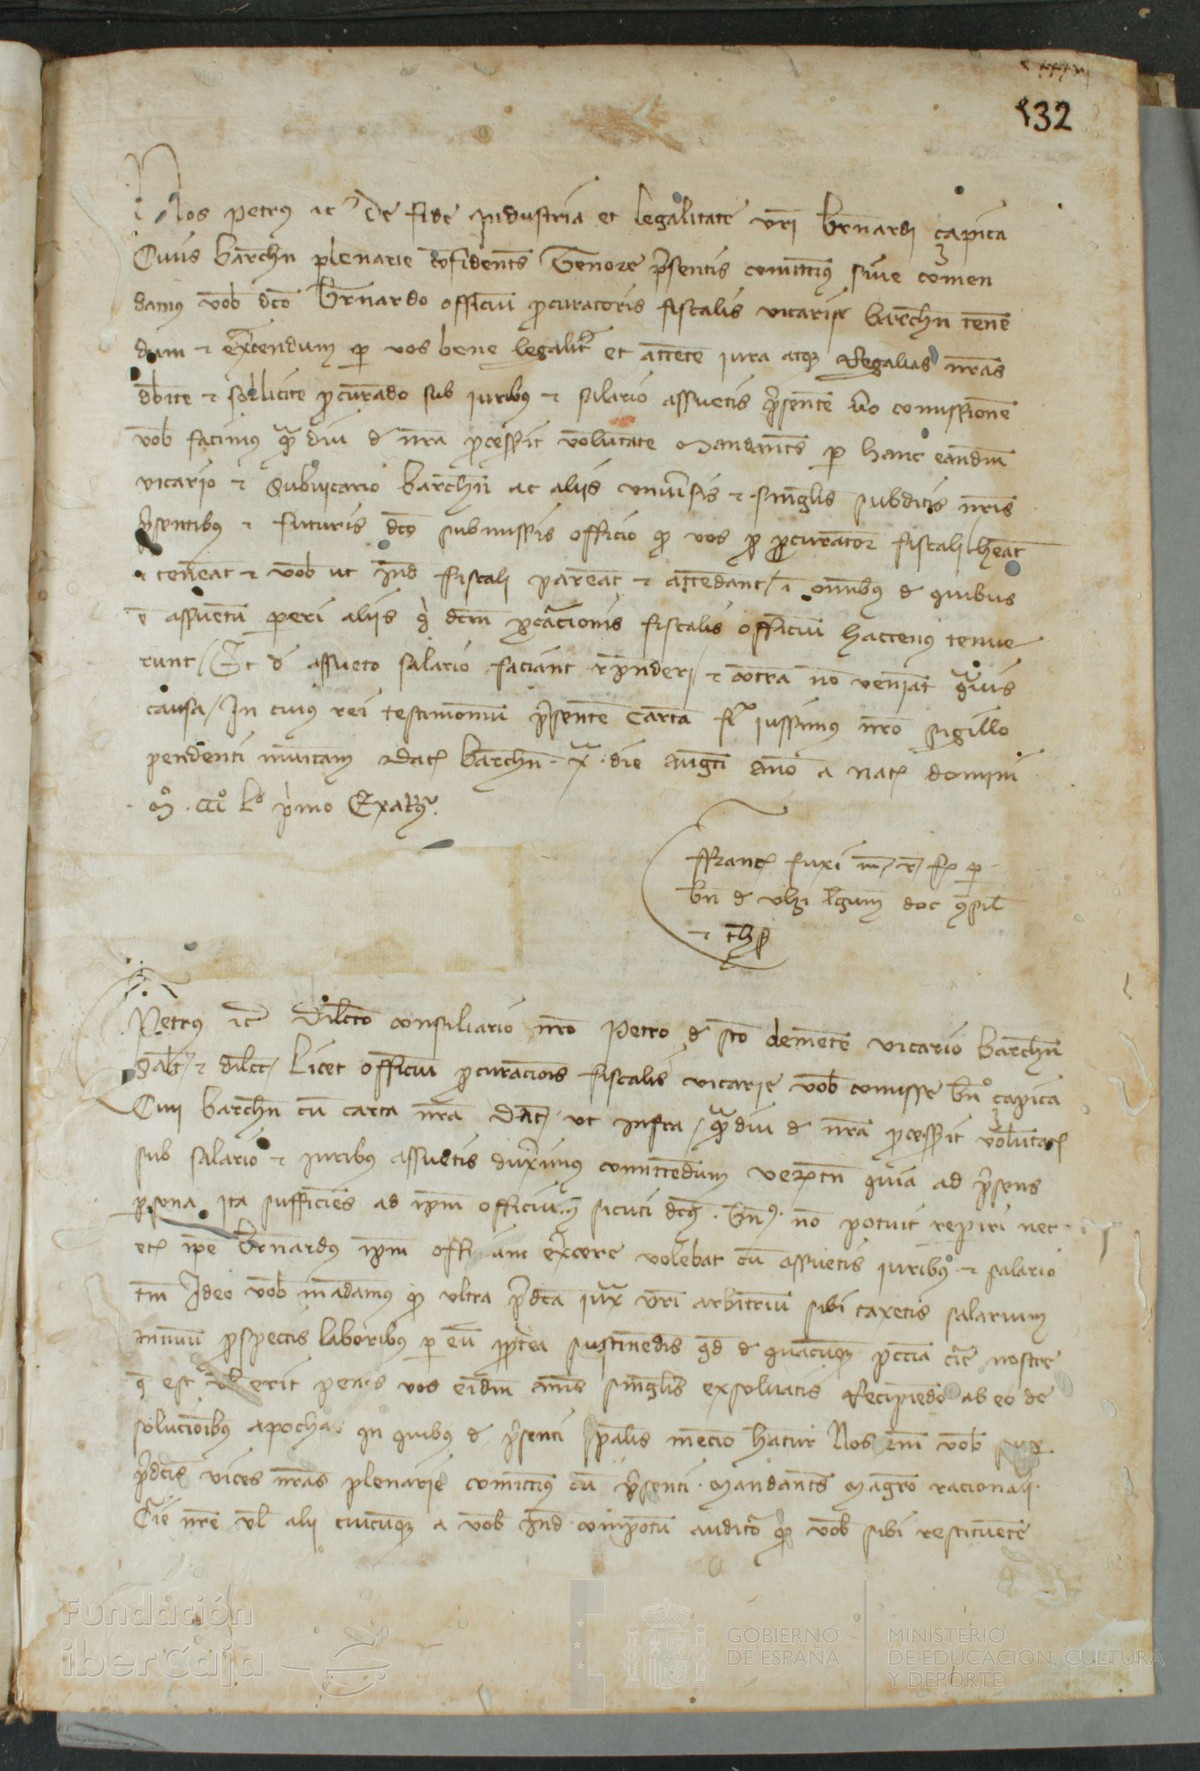 132
Nos Petrus etc De fide industria et legalitate vri Brnardi çapica
Civis barchn plenarie confidents Tenore psentis comittimus sive comen
damus vob dco Brnardo officiu pcuratoris fiscalis vicarie barchn tene
dum et exercendum p vos bene legalit et attente iura atque Regalias nras
dbite et sollicite pcurado sub iuribus et salario assuetis psente vo comissione
vob facimus quadiu de nra pcessit voluntate Mandants p hanc eandm
vicario et Subvicario barchn ac aliis univsis et singlis subditis nris
psentibus et futuris dco submissis officio q vos p pcurator fiscali heat
et teneat et vob ut ind fiscali pareat et attendant / i omibus de quibus
e assuetu pareri aliis q dcm pcacionis fiscalis officiu hactenus tenue
runt / Et de assueto salario faciant rponderi / et contra no veniat quis
causa / In cuius rei testimoniu psente carta fi iussimus nro sigillo
pendenti munitam Dat barchn x die augti ano a nat domini
Mo CCCo Lo primo Exatus
ffranc fuxi
bn de ulzi lgum doc 9sil
et thes
Petrus etc Dilcto consiliario nro Petro de sto clemente vicario barchn
Salt et dilcc / Licet officiu pcuracois fiscalis vicarie vob comisse bno çapica
Civi barchn cu carta nra Dat ut infra / quadiu de nra pcessit voluntat
sub salario et iuribus assuetis duximus comittendum veru tn quia ad psens
psona ita sufficies ad ipm officiu sicuti dcus bnus no potuit repiri nec
et ipe Brnardus ipm offi iam exercere volebat cu assuetis iuribus et salario
tm Ideo vob mandamus q ultra pdca iux vri arbitriu sibi taxetis salarium
annuu pspectis laboribus p eu pptea sustinedis qd de quacuque pccia cie nostre
q est vl erit penes vos eidm annis singlis exsolvatis Recipiedo ab eo de
solucioibus apocha in quibus de psenti spalis mencio hatur Nos em vob sup
pdcis vices nras plenarie comittimus cu psenti Mandants magro racionali
Cie nre vl alii cuicuque a vob ind compotu audito q vob sibi restituente
Fundación
iberCaja
GOBIERNO
DE ESPAÑA
MINISTERIO
DE EDUCACIÓN, CULTURA
Y DEPORTE